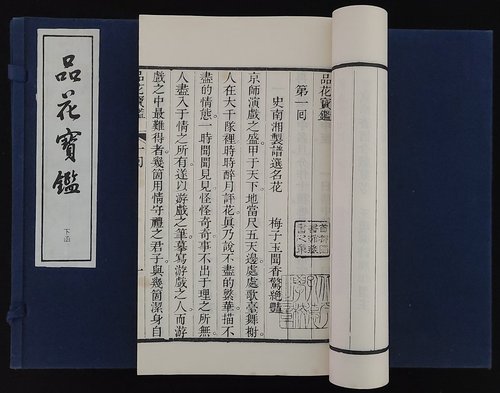 品花寶鑑
下函
品花寶鑑
第一回
史南湘製譜選名花　梅子玉聞香驚絕豔
京師演戲之盛。甲于天下。地當尺五天邊處處歌臺舞榭
人在大千隊裡時時醉月評花。真乃說不盡的繁華。描不
盡的情態。一時聞聞見見怪怪奇奇。事不出于理之所無。
人盡入于情之所有。遂以游戲之筆摹寫游戲之人。而游
戲之中最難得者幾箇用情守禮之君子與幾箇潔身自
品花寶鑑　一回　一